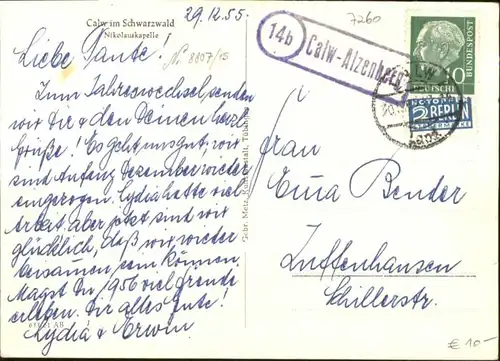 Calw im Schwarzwald
Nikolauskapelle
29.12.55.
No. 8807/15
Liebe Tante!
Zum Jahreswechsel senden
wir Dir & den Deinen herzl.
Grüße! Es geht uns gut, wir
sind Anfang Dezember wieder
eingezogen. Lydia hatte viel
Arbeit aber jetzt sind wir
glücklich, daß wir wieder
beisammen sein können.
Magst Du, 1956 viel Freude
erleben. Dir alles Gute!
Lydia & Erwin
Gebr. Metz, Kunstanstalt, Tübingen
7260
14b
Calw-Alzenberg
10
DEUTSCHE
BUNDESPOST
NOTOPFER
2 BERLIN
STEUERMARKE
Frau
Emma Bender
Zuffenhausen
Schillerstr.
€ 10-